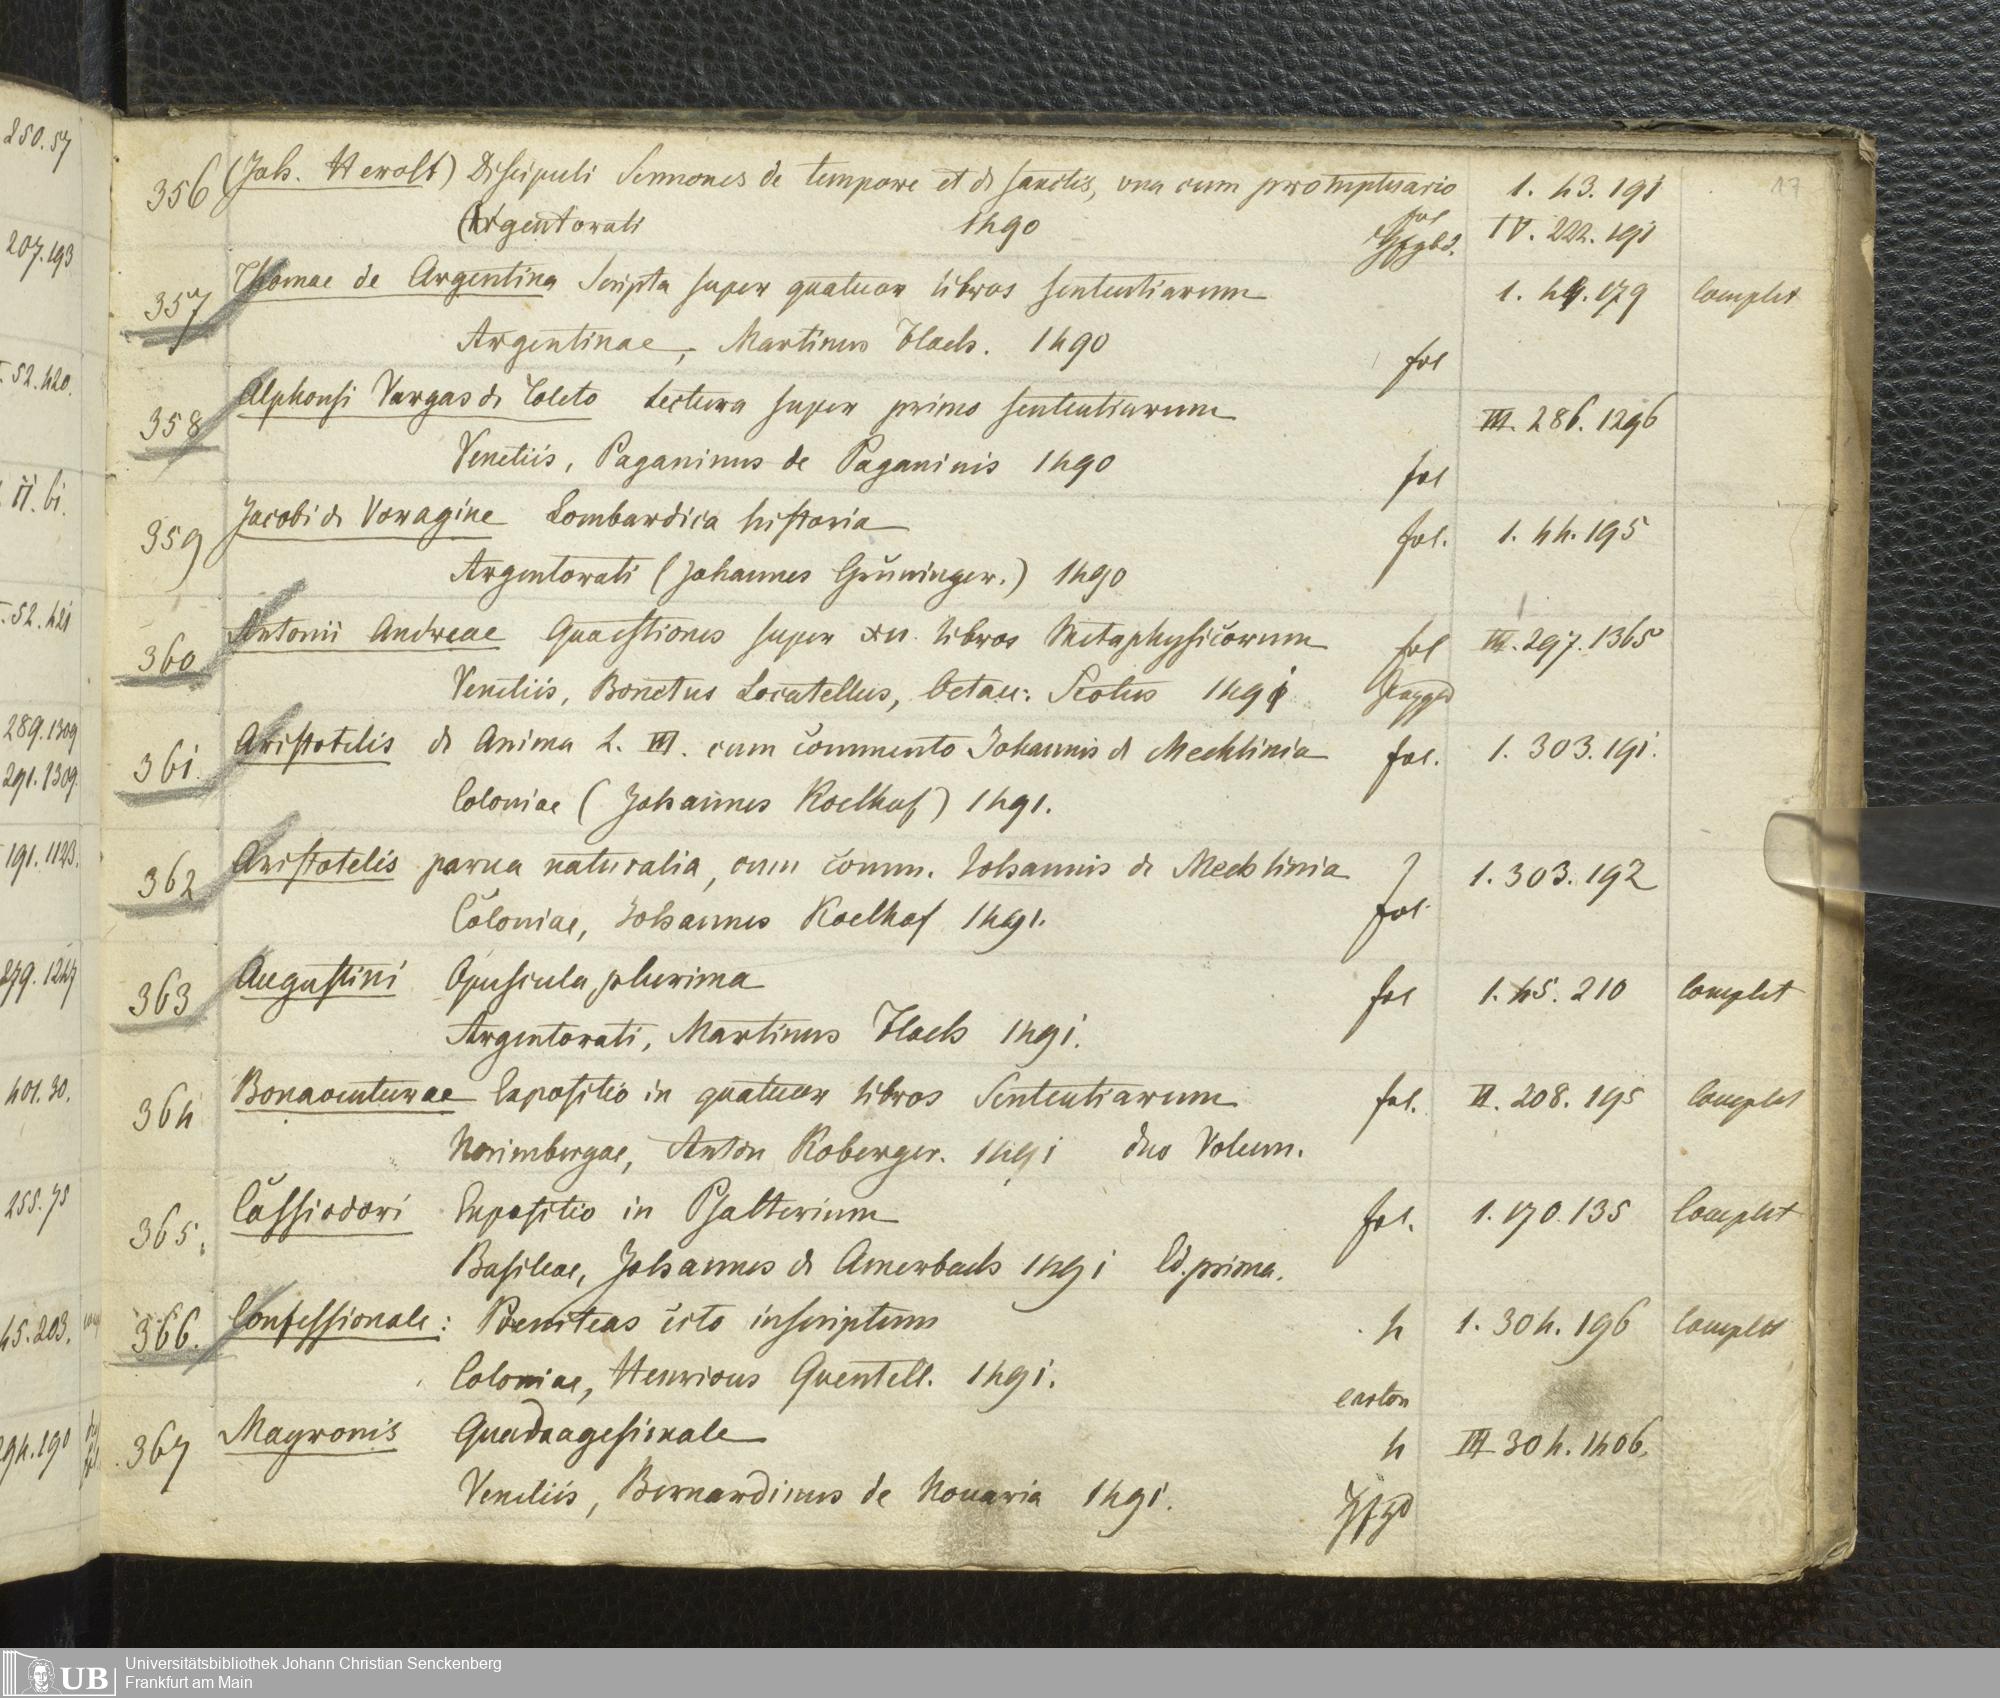 850.57
207.193
52.420.
11.61.
52.421
289.1309
291.1309.
191.1123.
279.1247
401.30.
255.75
45.203.
294.190
17
356 (Joh. Herolt) Discipuli Sermones de tempore et de sanctis, una cum promptuario 1. 43. 191
Argentorati 1490 fol IV. 222. 191
357 Thomae de Argentina Scripta super quatuor libros sententiarum 1. 44. 179 Complet
Argentinae, Martinus Flach. 1490 fol
358 Alphonsi Vargas de Toleto Lectura super primo sententiarum III. 286. 1296
Venetiis, Paganinus de Paganinis 1490 fol
359 Jacobi de Voragine Lombardica historia fol. 1. 44. 195
Argentorati (Johannes Grüninger.) 1490
360 Antonii Andreae Quaestiones super XII. libros Metaphysicorum fol III. 297. 1365
Venetiis, Bonetus Locatellus, Octau: Scotus 1491
361. Aristotelis de Anima L. III. cum commento Johannis de Mechlinia fol. 1. 303. 191.
Coloniae (Johannes Koelhof) 1491.
362 Aristotelis parua naturalia, cum comm. Johannis de Mechlinia 1. 303. 192
Coloniae, Johannes Koelhof 1491. fol.
363 Augustini Opuscula plurima fol 1. 45. 210 Complet
Argentorati, Martinus Flach 1491.
364 Bonaventurae Expositio in quatuor libros Sententiarum fol. II. 208. 195 Complet
Norimbergae, Anton Koberger. 1491 duo Volum.
365. Cassiodori Expositio in Psalterium fol. 1. 170. 135 Complet
Basileae, Johannes de Amerbach 1491 Ed. prima.
366. Confessionale: Poeniteas cito inscriptum 4 1. 304. 196 Complet
Coloniae, Henricus Quentell. 1491. carton
367 Mayronis Quadragesimale 4 III 304. 1406.
Venetiis, Bernardinus de Nouaria 1491.
UB
Universitätsbibliothek Johann Christian Senckenberg
Frankfurt am Main